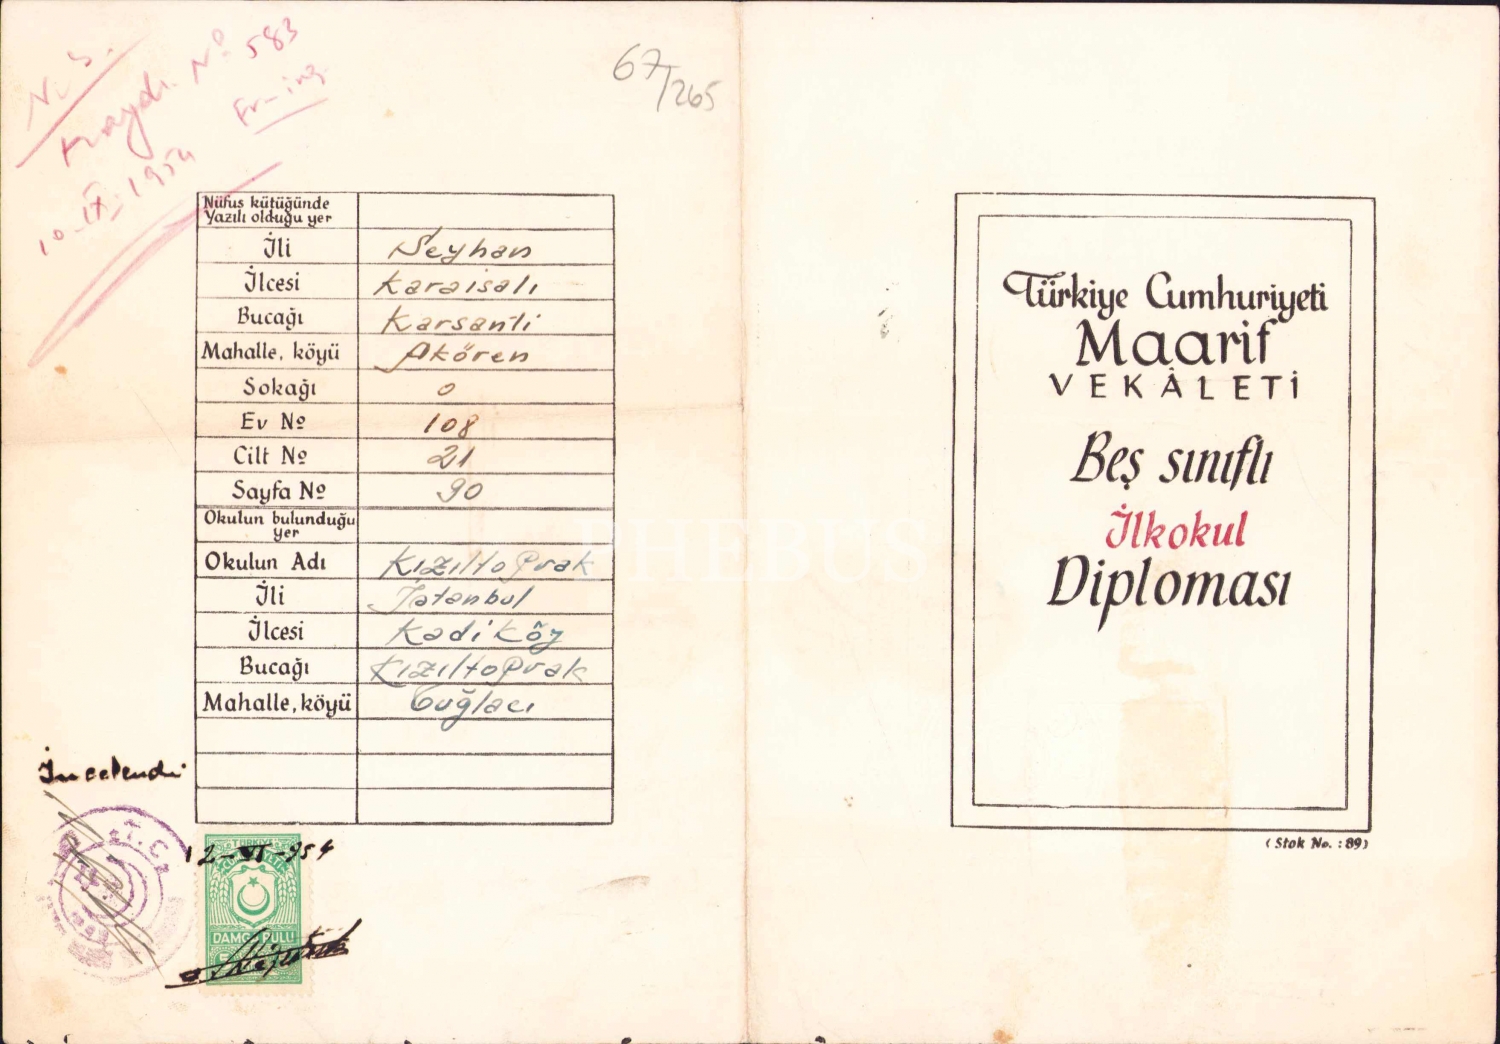 N. S.
Kaydı Nº 583
Fr-ing.
10-IX-1954
67/265
Nüfus kütüğünde
Yazılı olduğu yer
İli Seyhan
İlcesi Karaisalı
Bucağı Karsantı
Mahalle, köyü Akören
Sokağı 0
Ev Nº 108
Cilt Nº 21
Sayfa Nº 90
Okulun bulunduğu
yer
Okulun Adı Kızıltoprak
İli İstanbul
İlcesi Kadıköy
Bucağı Kızıltoprak
Mahalle, köyü Tuğlacı
İncelendi
T.C.
12-VI-954
TÜRKİYE
CUMHURİYETİ
DAMGA PULU
Türkiye Cumhuriyeti
Maarif
VEKÂLETİ
Beş sınıflı
İlkokul
Diploması
(Stok No. : 89)
PHEBUS